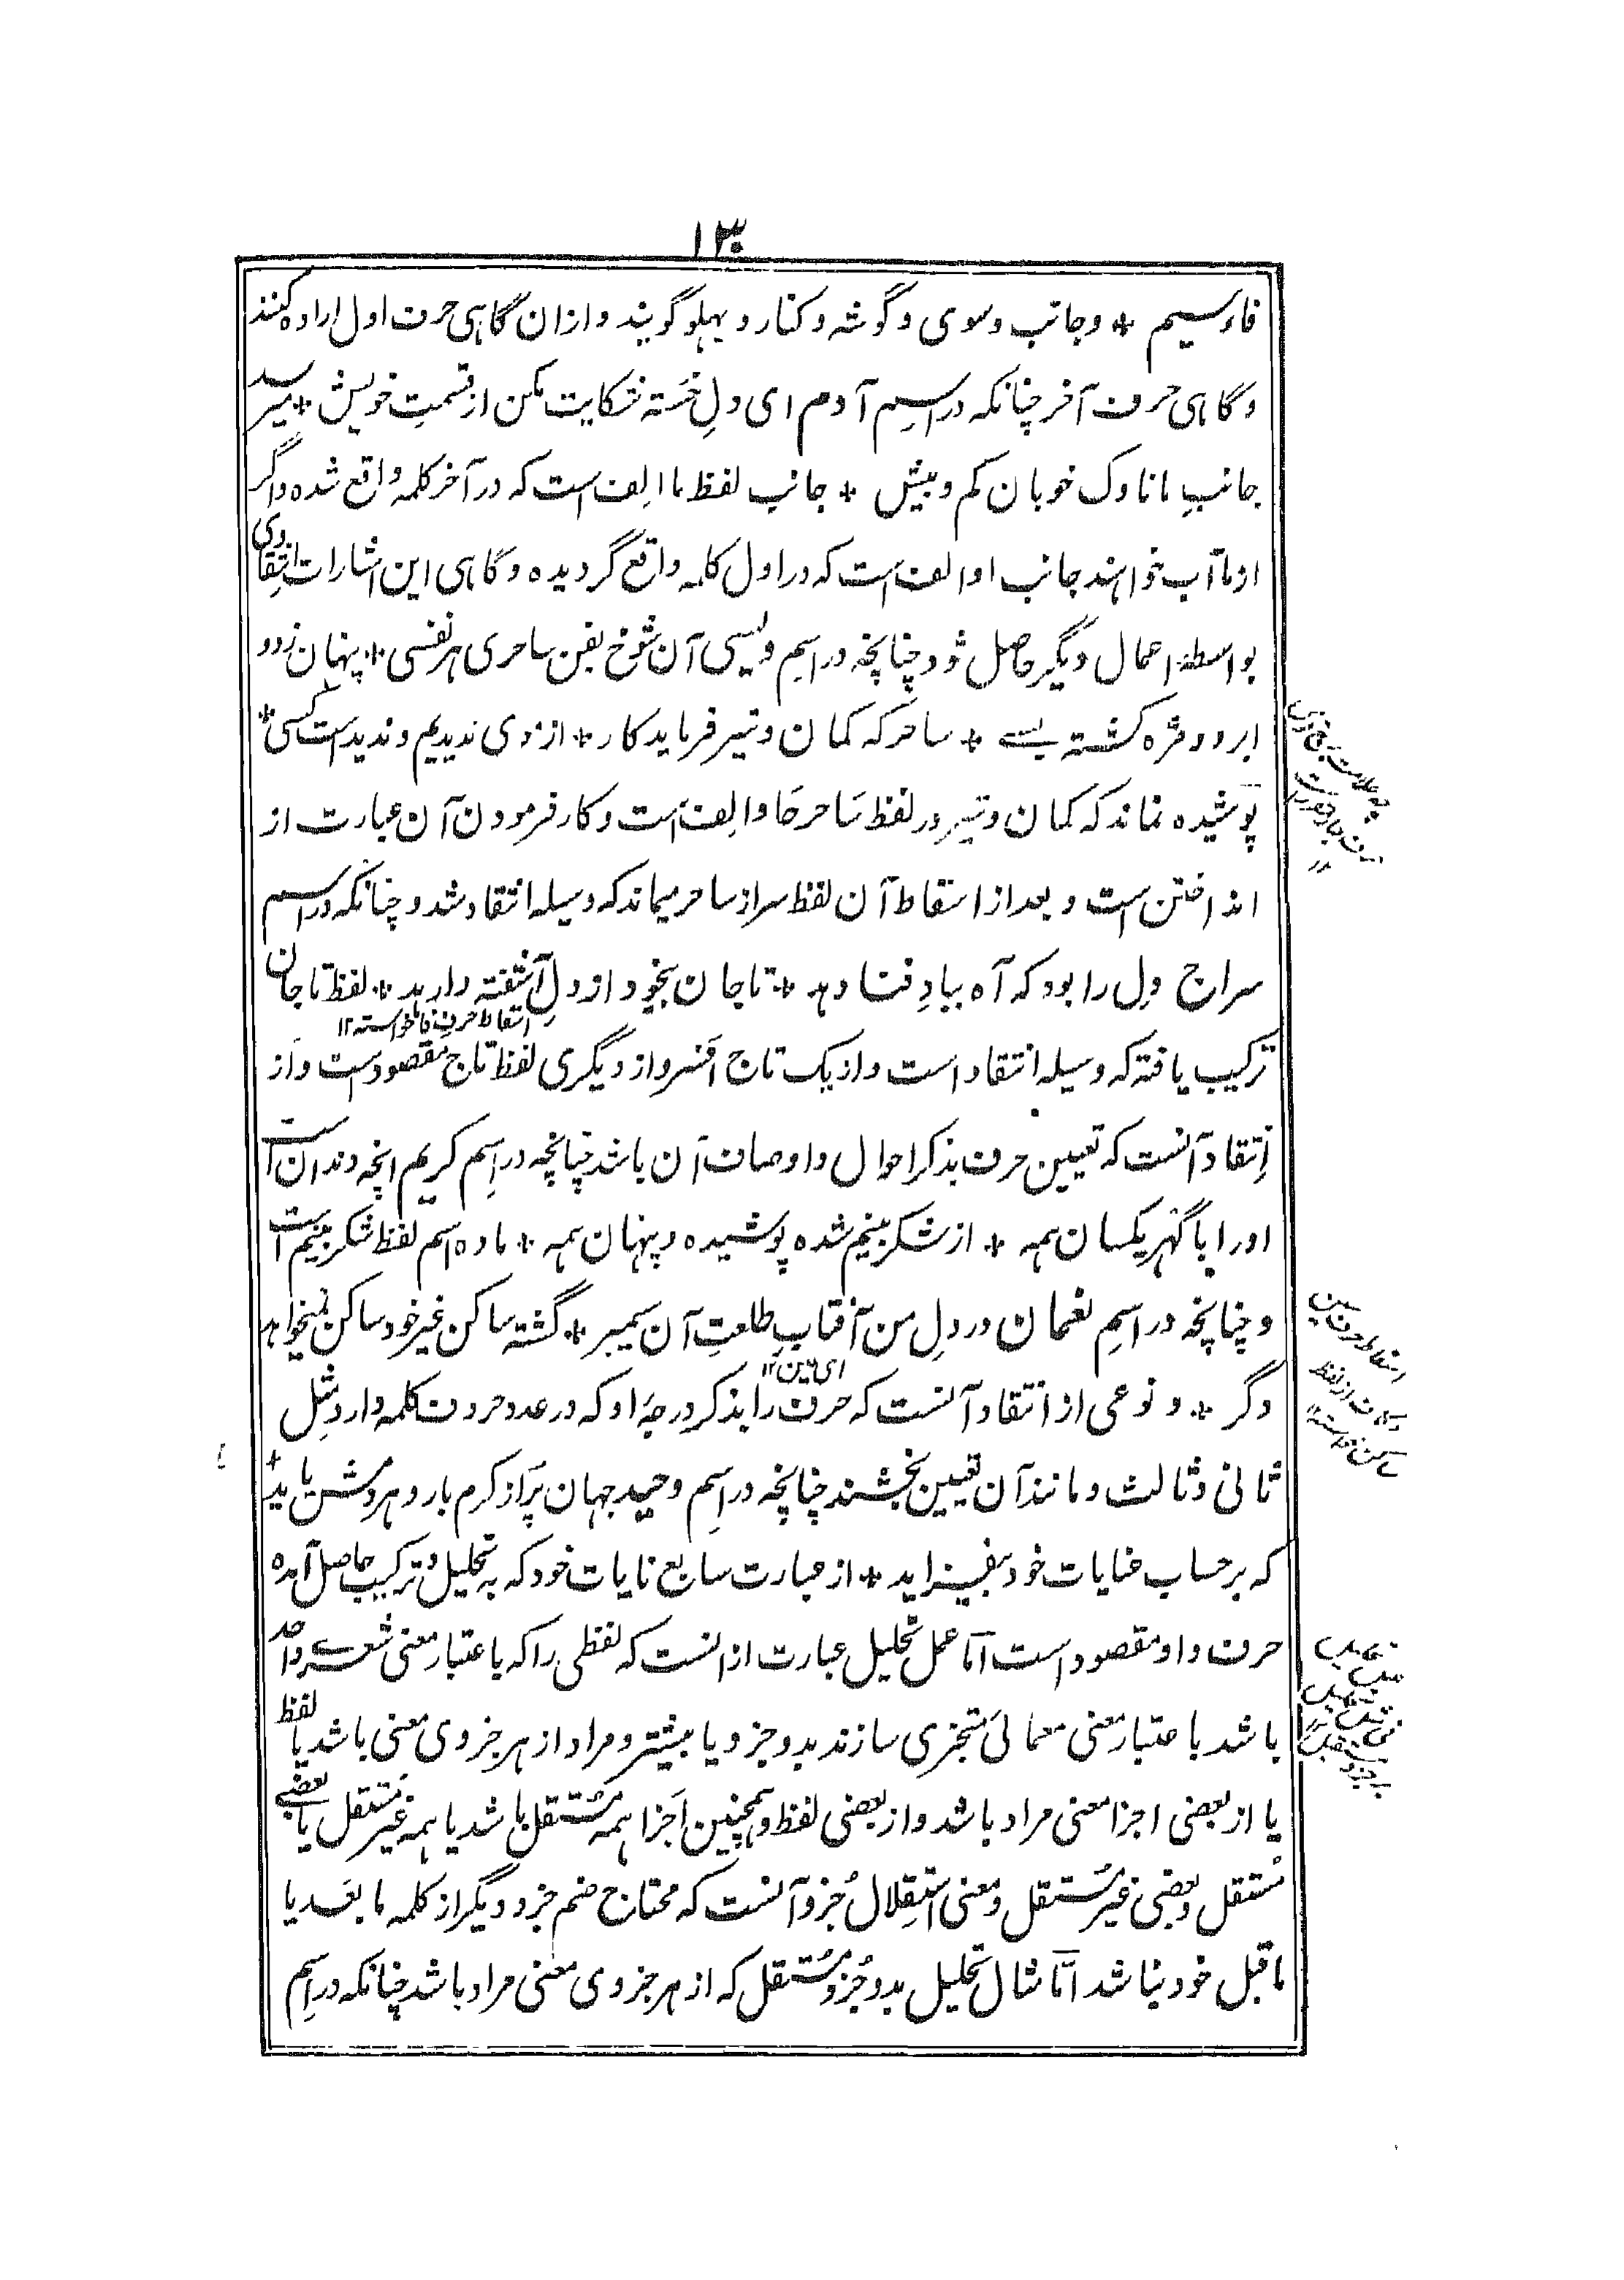 ۱۳
فاو سیم * و جانب و سوی و گوشه و کنار و پهلو گویند و ازان گاهی حرف اول اراده کنند
و گاهی حرف آخر چنانکه در اسم آدم ای دلِ خسته شکایت مکن از قسمتِ خویش * میرسد
جانبِ ما ناوک خوبان کم و بیش * جانب لفظ ما الف است که در آخر کلمه واقع شده و اگر
از ما آب خواهند جانب او الف است که در اول کلمه واقع گردیده و گاهی این اشارات انتقادی
بواسطهٔ اعمال دیگر حاصل شود چنانچه در اسم ویسی آن شوخ بفن ساحری هر نفسی * پنهان زدو
ابرو و مژه کشته بسے * ساحر که کمان و تیر فرماید کار * از وی ندیدیم و ندیدست کسی *
پوشیده نماند که کمان و تیر در لفظ ساحر حا و الف است و کار فرمودن آن عبارت از
انداختن است و بعد از اسقاط آن لفظ سر از ساحر میماند که وسیله انتقاد شد و چنانکه در اسم
سراج دل را بود که آه بیادِ فتاده * تا جان بیخود از دلِ آشفته وارهد * لفظ تا جان
اسقاط حرف خواسته ۱۲
ترکیب یافته که وسیله انتقاد است و از یک تاج افسر و از دیگری لفظ تاج مقصود است و از
اِنتقاد آنست که تعیین حرف بذکر احوال و اوصاف آن باشد چنانچه در اِسم کریم انچه دندان است
اورا با گهر یکسان همه * از شکر بینم شده پوشیده و پنهان همه * ماده اسم لفظ شکر بینم است
و چنانچه در اسمِ نعمان در دلِ من آفتابِ طلعتِ آن سیمبر * گشته ساکن غیر خود ساکن نمیخواهد
ای عین ۱۲
دگر * و نوعی از انتقاد آنست که حرف را بذکر درجهٔ او که در عدد حروف کلمه دارد مثل
ثانی و ثالث و مانند آن تعیین بخشند چنانچه در اِسم وحید جهان پُر از کرم بار و هردمش باید *
که بر حساب عنایات خود بیفزاید * از عبارت سابع نایات خود که به تحلیل و ترکیب حاصل آمده
حرف واو مقصود است امّا عمل تحلیل عبارت ازانست که لفظی را که باعتبار معنی شعرے واحد
باشد باعتبار معنی معمائی متجزی سازند بدو جزو یا بیشتر و مراد از هر جزوی معنی باشد یا لفظ
یا از بعضی اجزا معنی مراد باشد و از بعضی لفظ و همچنین اجزا همه مستقل باشد یا همه غیر مستقل یا بعضے
مستقل و بعضی غیر مستقل و معنی استقلال جُزو آنست که محتاج ضم جزو دیگر از کلمه ما بعد یا
ما قبل خود نباشد امّا مثال تحلیل بدو جُزو مستقل که از هر جزوی معنی مراد باشد چنانکه در اِسم